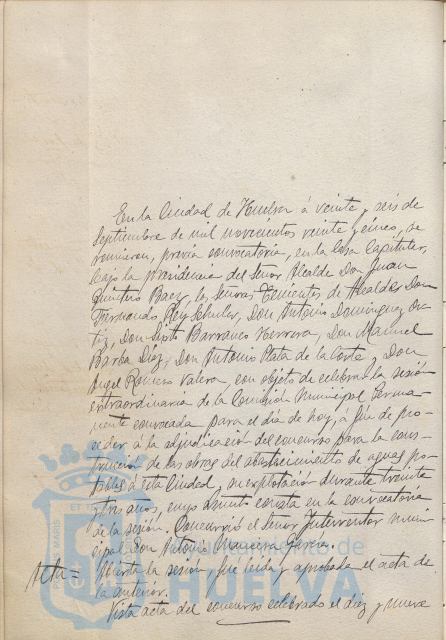 En la Ciudad de Huelva á veinte y seis de
Septiembre de mil novecientos veinte y cinco, se
reunieron, previa convocatoria, en la Casa Capitular,
bajo la presidencia del Señor Alcalde Don Juan
Quintero Baez, los Señores Tenientes de Alcalde Don
Fernando Rey Don Antonio Dominguez Or-
tiz, Don Sixto Barranco Herrera, Don Manuel
Barba Diaz, Don Antonio Plata de la Corte y Don
Angel Romero Valera, con objeto de celebrar la sesión
extraordinaria de la Comisión Municipal Perma-
nente convocada para el dia de hoy, á fin de pro-
ceder á la adjudicación del concurso para la cons-
trucción de las obras del abastecimiento de aguas po-
tables á esta Ciudad, su explotación durante treinta
y tres años, cuyo asunto consta en la convocatoria
de la sesión. Concurrió el Señor Interventor muni-
cipal Don Antonio García.
Acta = Abierta la sesión, fué leida y aprobada el acta de
la anterior.
Vista acta del concurso celebrado el diez y nueve
Ayuntamiento de
HUELVA